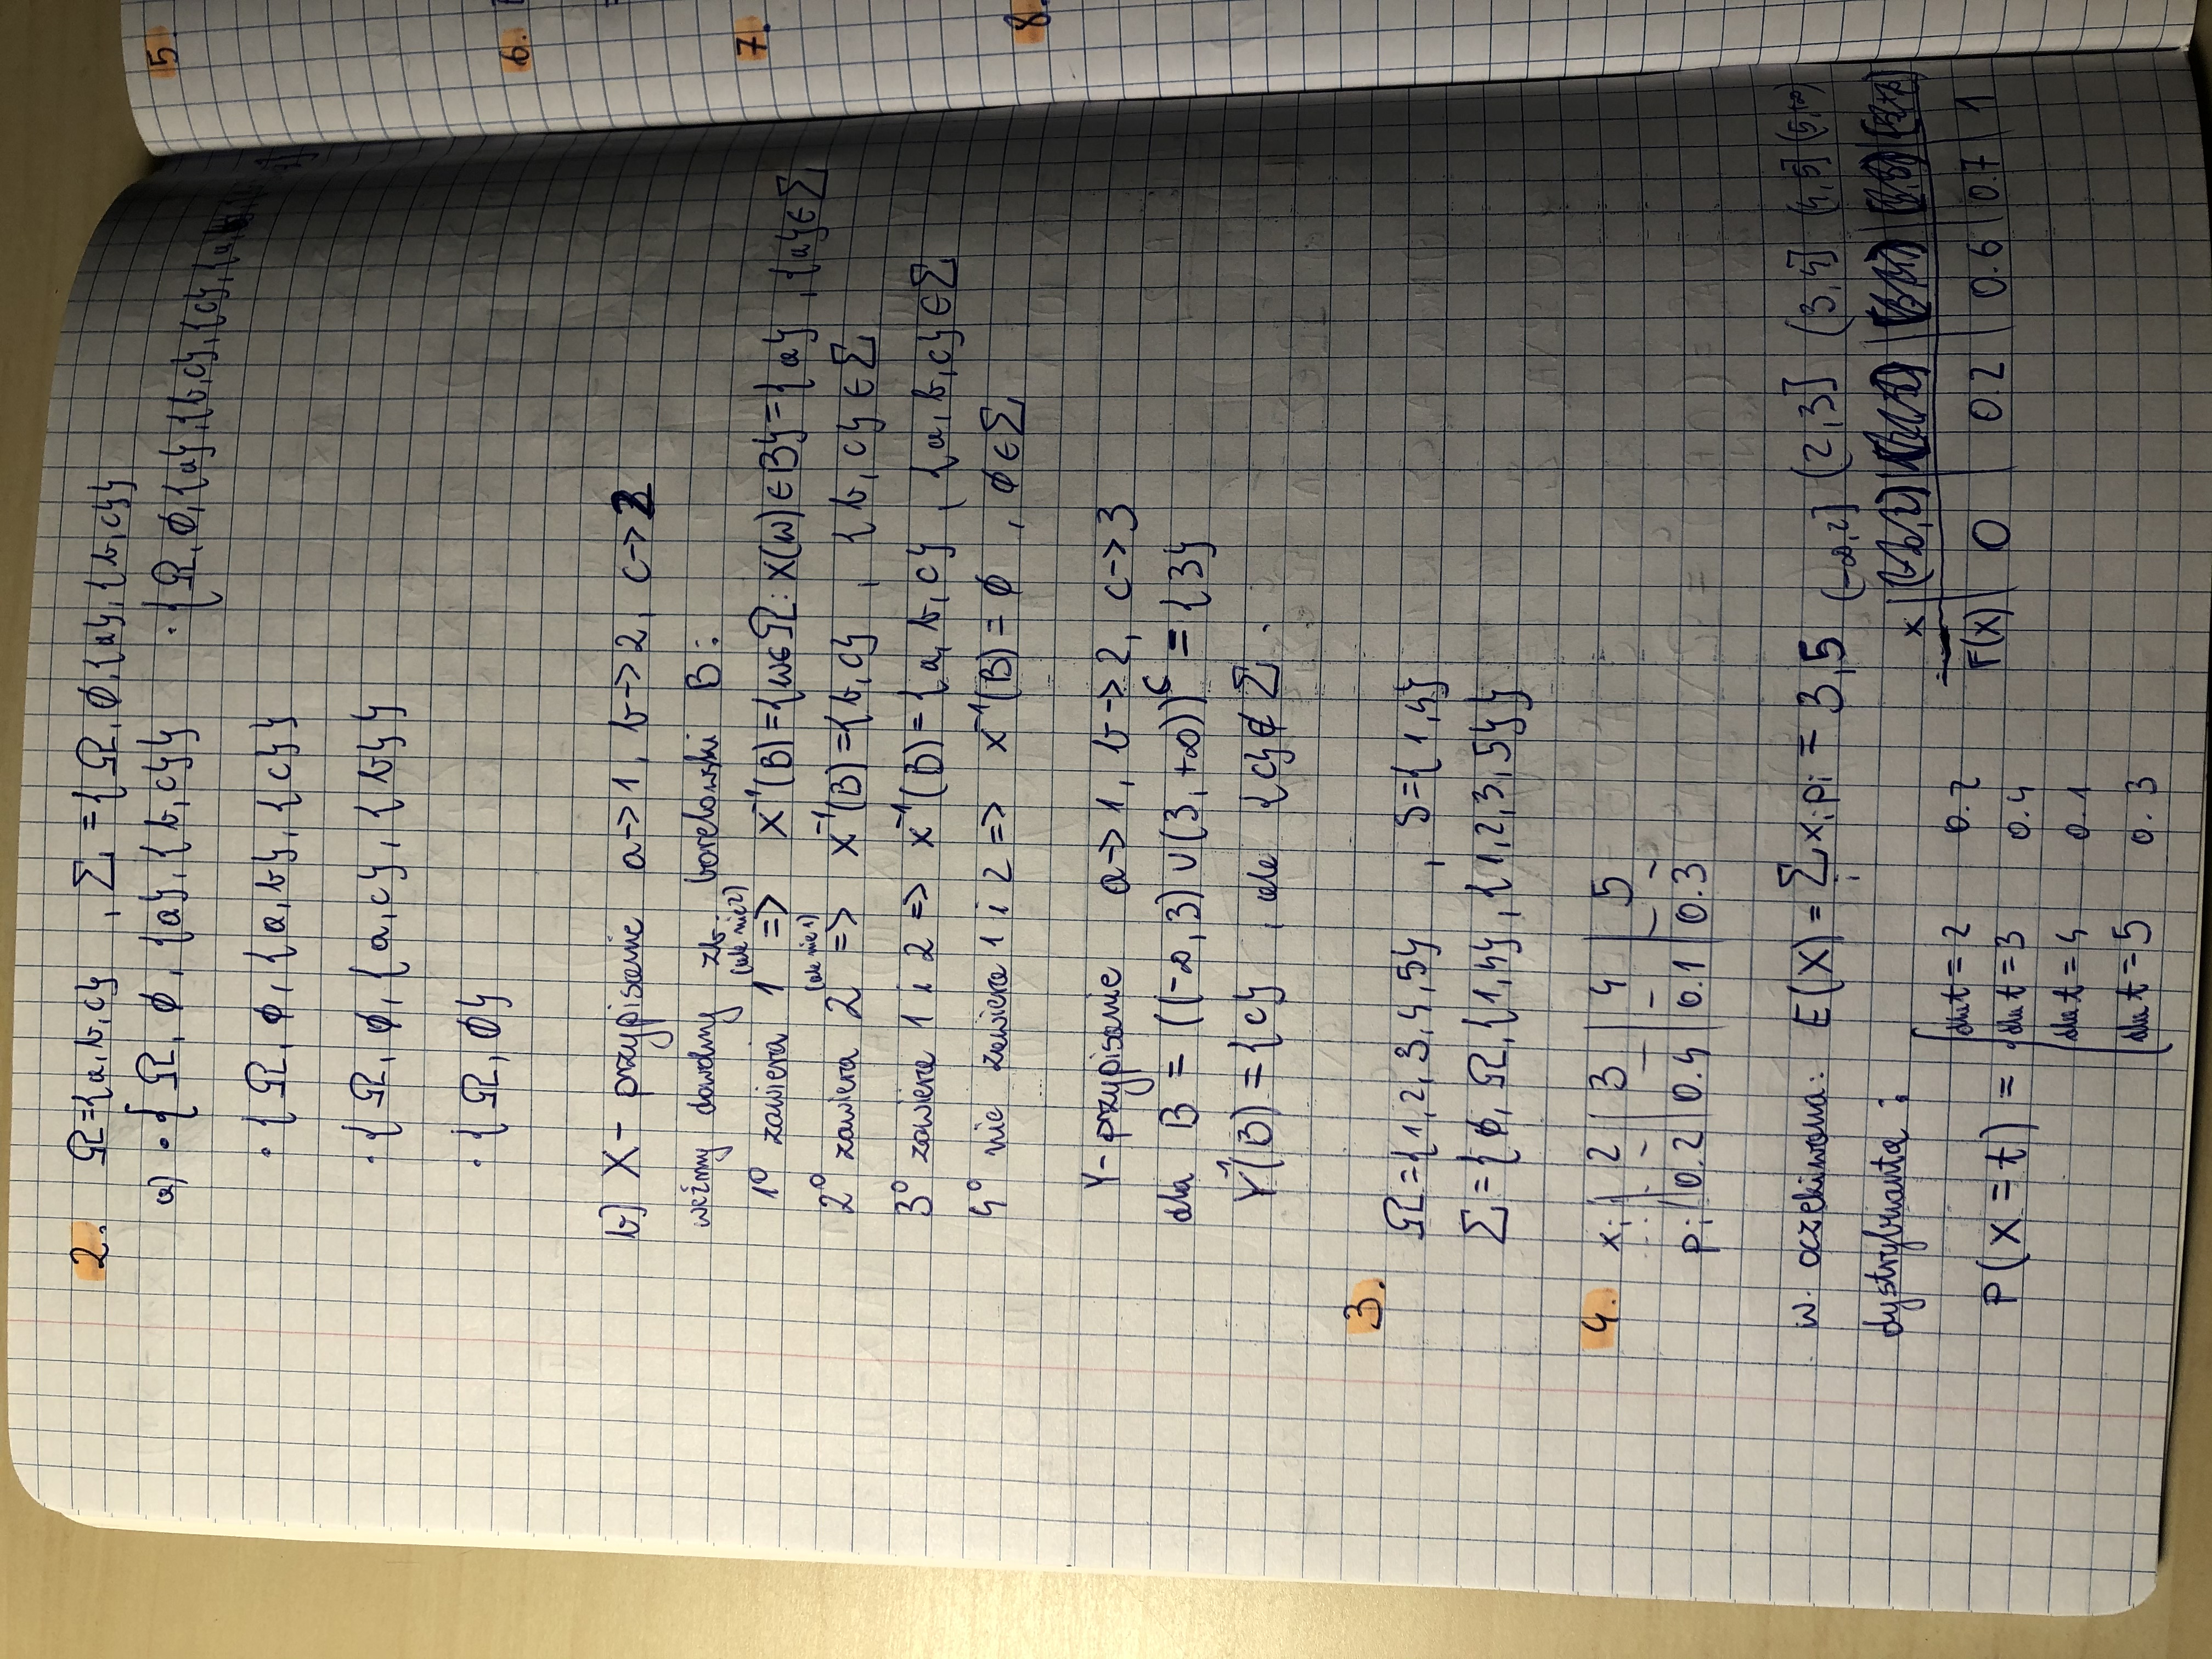 2. Ω={a,b,c} , Σ={Ω,∅,{a},{b,c}}
a) • {Ω, ∅, {a}, {b,c}} • {Ω,∅,{a},{b,c},{c},{a,
• {Ω, ∅, {a,b}, {c}}
• {Ω, ∅, {a,c}, {b}}
• {Ω, ∅}
b) X - przypisanie a->1, b->2, c->2
weźmy dowolny zb. borelowski B:
(ale nie 2)
1° zawiera 1 => X⁻¹(B)={ω∈Ω: X(ω)∈B}={a} , {a}∈Σ
(ale nie 1)
2° zawiera 2 => X⁻¹(B)={b,c} , {b,c}∈Σ
3° zawiera 1 i 2 => X⁻¹(B)={a,b,c} , {a,b,c}∈Σ
4° nie zawiera 1 i 2 => X⁻¹(B)=∅ , ∅∈Σ
Y- przypisanie a->1, b->2, c->3
dla B = ((-∞,3)∪(3,+∞))ᶜ = {3}
Y⁻¹(B)={c} , ale {c}∉Σ.
3.
Ω={1,2,3,4,5} , S={1,4}
Σ={∅, Ω,{1,4},{1,2,3,5}}
4. xᵢ | 2 | 3 | 4 | 5
pᵢ | 0.2 | 0.4 | 0.1 | 0.3
w. oczekiwana: E(X)=Σᵢ xᵢpᵢ = 3,5
dystrybuanta:
P(X=t) = { dla t=2 0.2
dla t=3 0.4
dla t=4 0.1
dla t=5 0.3
(-∞,2] (2,3] (3,4] (4,5] (5,+∞)
x
F(X) | 0 | 0.2 | 0.6 | 0.7 | 1
5.
6.
7.
8.